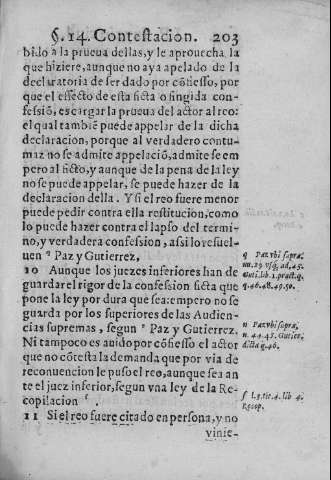 §. 14. Contestacion. 203
bido a la prueua dellas, y le aprouecha la
que hiziere, aunque no aya apelado de la
declaratoria de ser dado por cõfiesso, por
que el effecto de esta ficta o fingida con-
fessiõ, es cargar la prueua del actor al reo:
el qual tambiẽ puede appelar de la dicha
declaracion, porque al verdadero contu-
maz no se admite appelaciõ, admite se em
pero al ficto, y aunque de la pena de la ley
no se puede appelar, se puede hazer de la
declaracion della. Y si el reo fuere menor
puede pedir contra ella restitucion, como
lo puede hazer contra el lapso del termi-
no, y verdadera confession, assi lo resuel-
uen q Paz y Gutierrez.
10 Aunque los juezes inferiores han de
guardar el rigor de la confession ficta que
pone la ley por dura que sea: empero no se
guarda por los superiores de las Audien-
cias supremas, segun n Paz y Gutierrez.
Ni tampoco es auido por cõfiesso el actor
que no cõtesta la demanda que por via de
reconuencion le puso el reo, aunque sea an
te el juez inferior, segun vna ley de la Re-
copilacion ſ.
11 Si el reo fuere citado en persona, y no
vinie-
q Paz vbi supra,
nu. 29. vsq; ad. 45.
Guti. lib. 1. pract. q.
q. 46. 48. 49. 50.
n Paz vbi supra,
n. 44. 45. Gutier.
dicta q. 46.
ſ l. 9. tit. 4. lib 4.
Recop.